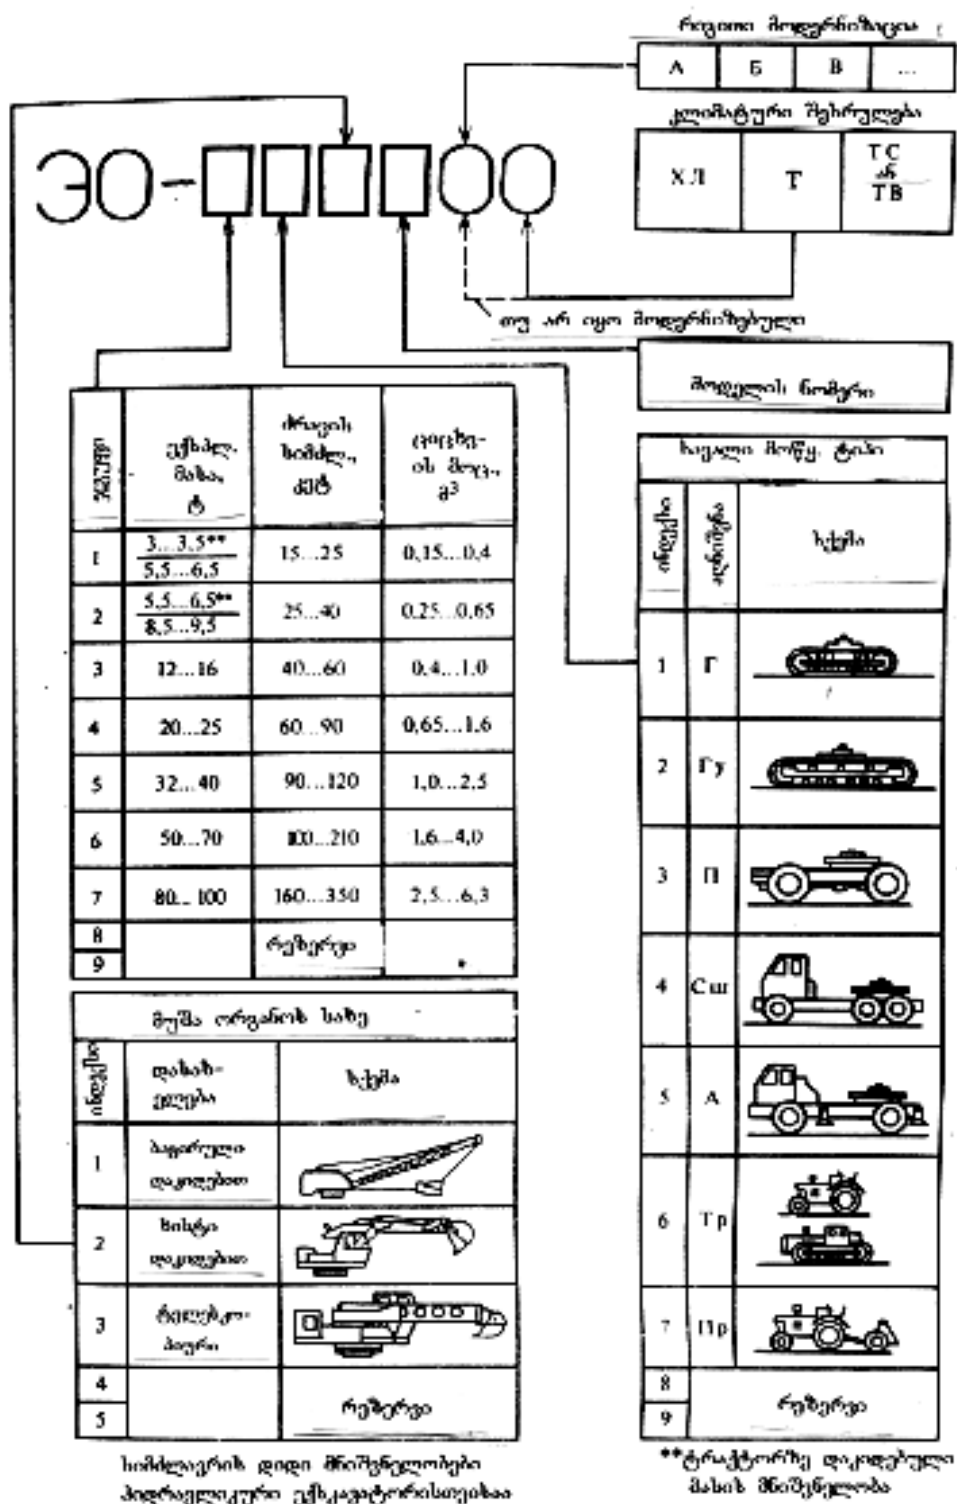 რიგითი მოდერნიზაცია
А Б В ...
კლიმატური შესრულება
ХЛ Т ТС ან ТВ
ЭО-
თუ არ იყო მოდერნიზებული
მოდელის ნომერი
ჯგუფი
ექსპლ. მასა, ტ
ძრავის სიმძლ., კვტ
ციცხვ-
ის მოც., მ³
1 3...3,5** 5,5...6,5 15...25 0,15...0,4
2 5,5...6,5** 8,5...9,5 25...40 0,25...0,65
3 12...16 40...60 0,4...1,0
4 20...25 60...90 0,65...1,6
5 32...40 90...120 1,0...2,5
6 50...70 100...210 1,6...4,0
7 80...100 160...350 2,5...6,3
8
რეზერვი
9
მუშა ორგანოს სახე
ინდექსი
დასახ-
ელება
სქემა
1 ბაგირული
დაკიდებით
2 ხისტი
დაკიდებით
3 ტელესკო-
პიური
4
რეზერვი
5
სავალი მოწყ. ტიპი
ინდექსი
სქემა
1 Г
2 Гу
3 П
4 Сш
5 А
6 Тр
7 Пр
8
რეზერვი
9
სიმძლავრის დიდი მნიშვნელობები
ჰიდრავლიკური ექსკავატორისთვისაა
**ტრაქტორზე დაკიდებული
მასის მნიშვნელობა